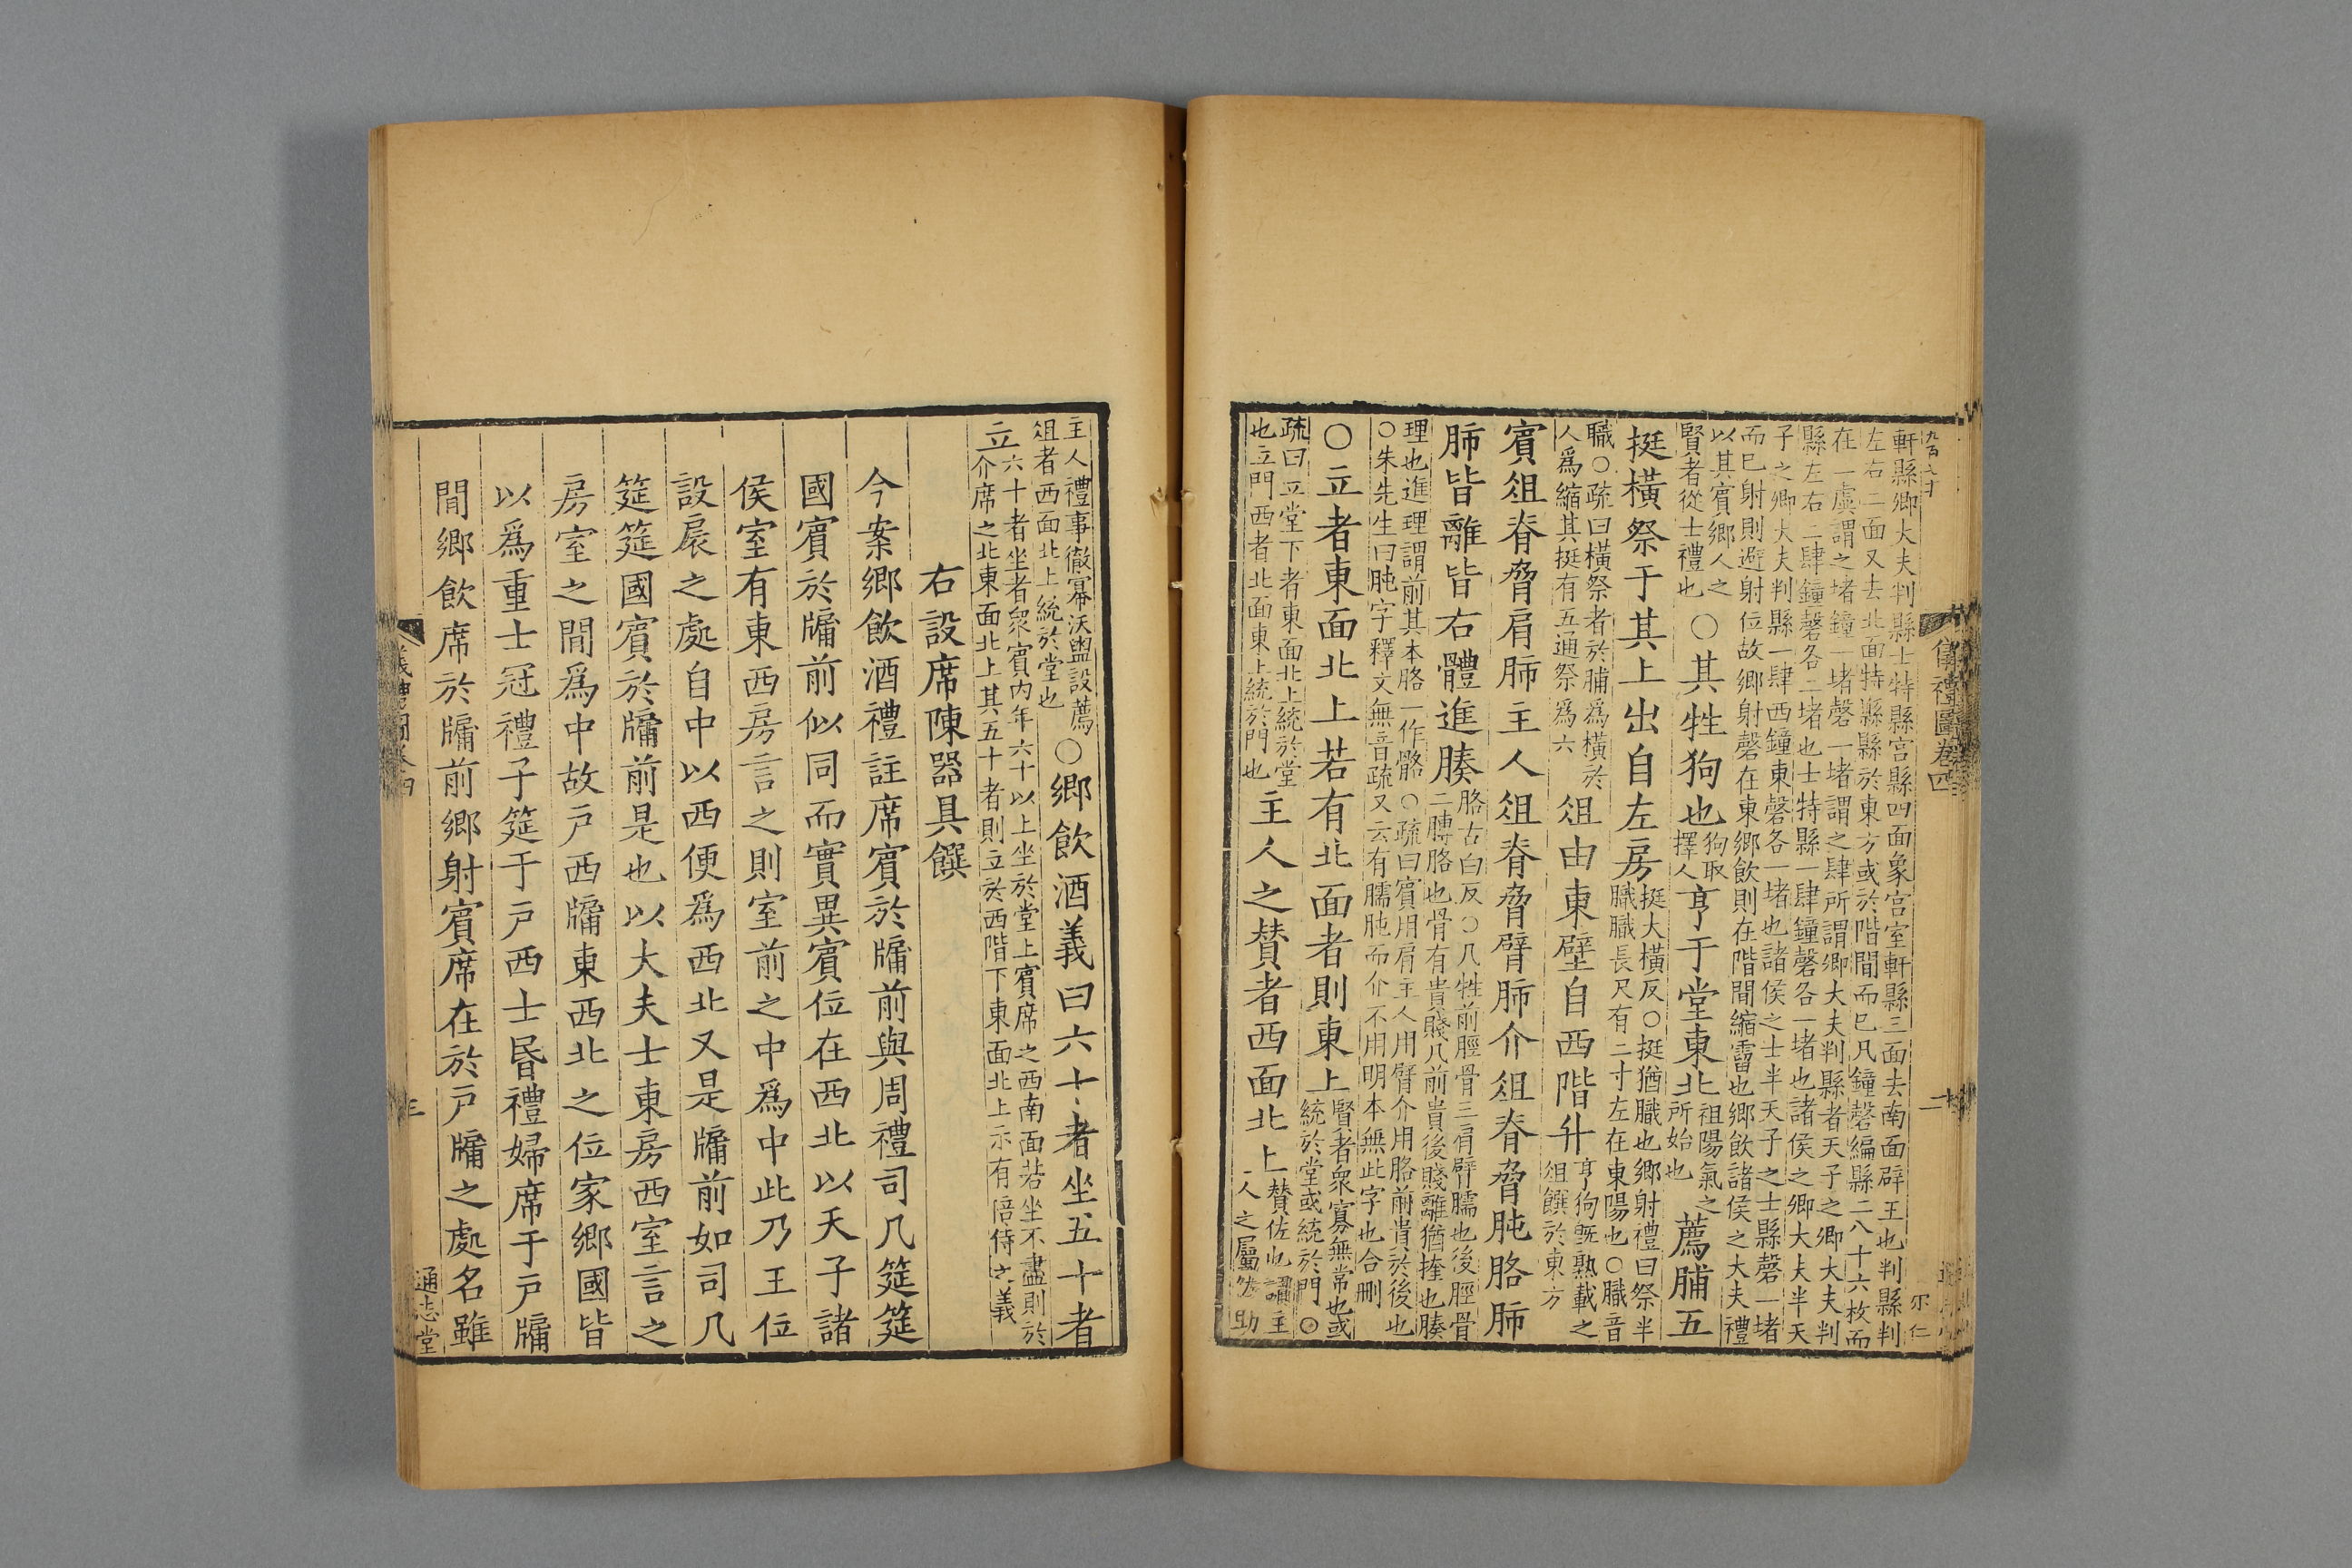 九百六十
軒縣卿大夫判縣士特縣宮縣四面象宮室軒縣三面去南面辟王也判縣判
左右二面又去北面特縣縣於東方或於階間而已凡鐘磬編縣二八十六枚而
在一虡謂之堵鐘一堵磬一堵謂之肆所謂卿大夫判縣者天子之卿大夫判
縣左右二肆鐘磬各二堵也士特縣一肆鐘磬各一堵也諸侯之卿大夫半天
子之卿大夫判縣一肆西鐘東磬各一堵也諸侯之士半天子之士縣磬一堵
而已射則避射位故鄉射磬在東鄉飲則在階間縮霤也鄉飲諸侯之大夫禮
以其賓鄉人之
賢者從士禮也
○其牲狗也
狗取
擇人
亨于堂東北
祖陽氣之
所始也
薦脯五
挺橫祭于其上出自左房
挺大橫反○挺猶膱也鄉射禮曰祭半
膱膱長尺有二寸左在東陽也○膱音
職○疏曰橫祭者於脯爲橫於
人爲縮其挺有五通祭爲六
俎由東壁自西階升
亨狗旣熟載之
俎饌於東方
賓俎脊脅肩肺主人俎脊脅臂肺介俎脊脅肫胳肺
肺皆離皆右體進腠
胳古白反○凡牲前脛骨三肩臂臑也後脛骨
二膊胳也骨有貴賤凡前貴後賤離猶㨒也腠
理也進理謂前其本胳一作骼○疏曰賓用肩主人用臂介用胳前貴於後也
○朱先生曰肫字釋文無音疏又云有臑肫而介不用明本無此字也合刪
○立者東面北上若有北面者則東上
賢者衆寡無常也或
統於堂或統於門○
疏曰立堂下者東面北上統於堂
也立門西者北面東上統於門也
主人之贊者西面北上
贊佐也謂主
人之屬佐助
儀禮圖卷四
二
尔仁
主人禮事徹冪沃盥設薦
俎者西面北上統於堂也
○鄉飲酒義曰六十者坐五十者
立
六十者坐者衆賓內年六十以上坐於堂上賓席之西南面若坐不盡則於
介席之北東面北上其五十者則立於西階下東面北上示有陪侍之義
右設席陳器具饌
今案鄉飲酒禮註席賓於牖前與周禮司几筵筵
國賓於牖前似同而實異賓位在西北以天子諸
侯室有東西房言之則室前之中爲中此乃王位
設扆之處自中以西便爲西北又是牖前如司几
筵筵國賓於牖前是也以大夫士東房西室言之
房室之間爲中故戶西牖東西北之位家鄉國皆
以爲重士冠禮子筵于戶西士昏禮婦席于戶牖
間鄉飲席於牖前鄉射賓席在於戶牖之處名雖
儀禮圖卷四
三
通志堂